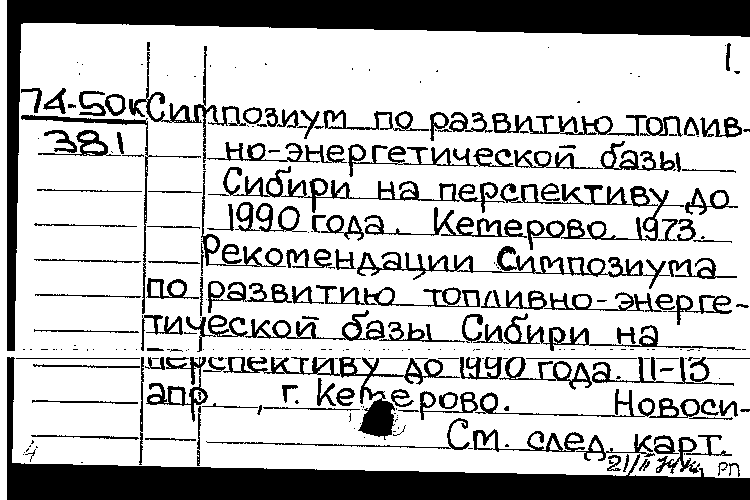 1.
74-50к Симпозиум по развитию топлив-
381 но-энергетической базы
Сибири на перспективу до
1990 года. Кемерово. 1973.
Рекомендации Симпозиума
по развитию топливно-энерге-
тической базы Сибири на
перспективу до 1990 года. 11-13
апр. , г. Кемерово. Новоси-
См. след. карт.
4 РП